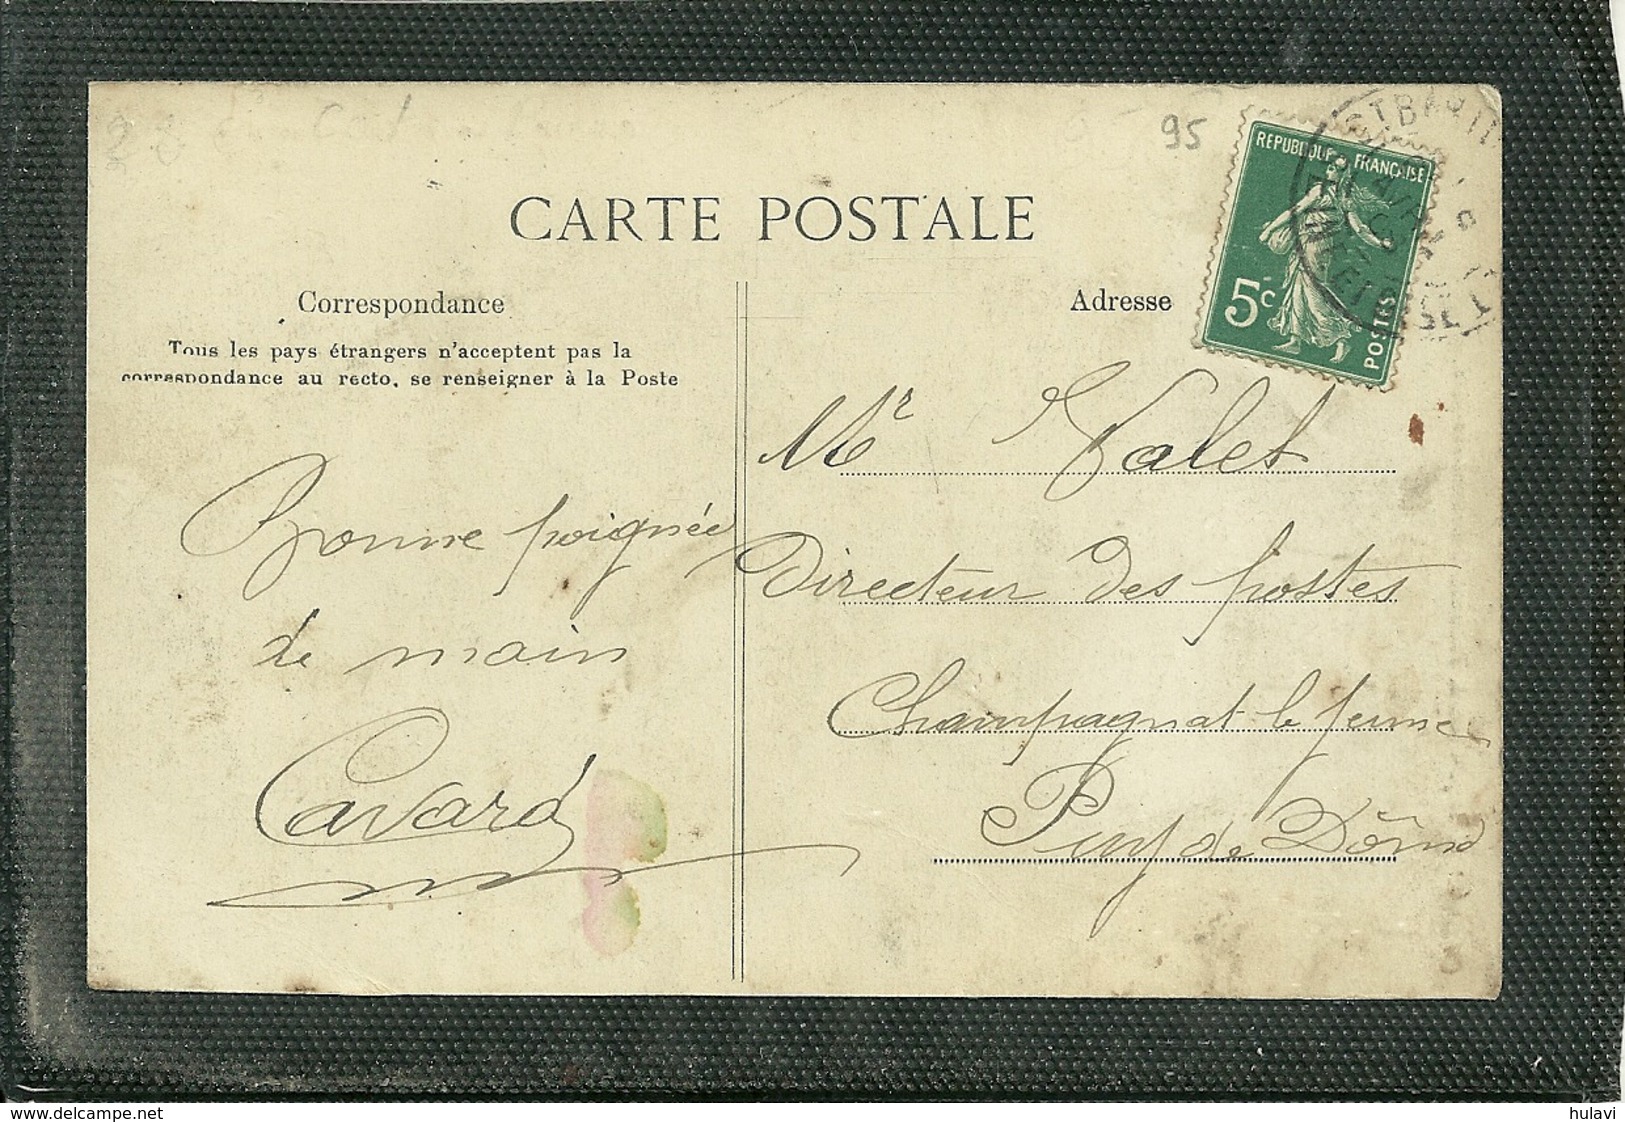 95
CARTE POSTALE
REPUBLIQUE FRANÇAISE
5c
POSTES
Correspondance
Adresse
Tous les pays étrangers n'acceptent pas la
correspondance au recto, se renseigner à la Poste
Bonne poignée
de main
Cavard
Mr Valet
Directeur des postes
Champagnat le jeune
Puy de Dôme
delcampe.net
hulavi